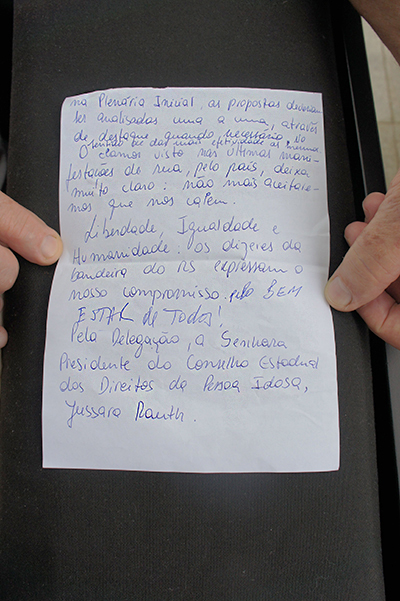 na Plenária Inicial, as propostas deveriam
ser analisadas uma a uma, através
de destaque, quando necessário, no
sentido de dar mais efetividade as mesmas
O clamor visto nas últimas mani-
festações de rua, pelo país, deixa
muito claro: não mais aceitare-
mos que nos calem.
Liberdade, Igualdade e
Humanidade. Os dizeres da
bandeira do RS expressam o
nosso compromisso pelo BEM
ESTAR de Todos!
Pela Delegação, a Senhora
Presidente do Conselho Estadual
dos Direitos da Pessoa Idosa,
Jussara Rauth.